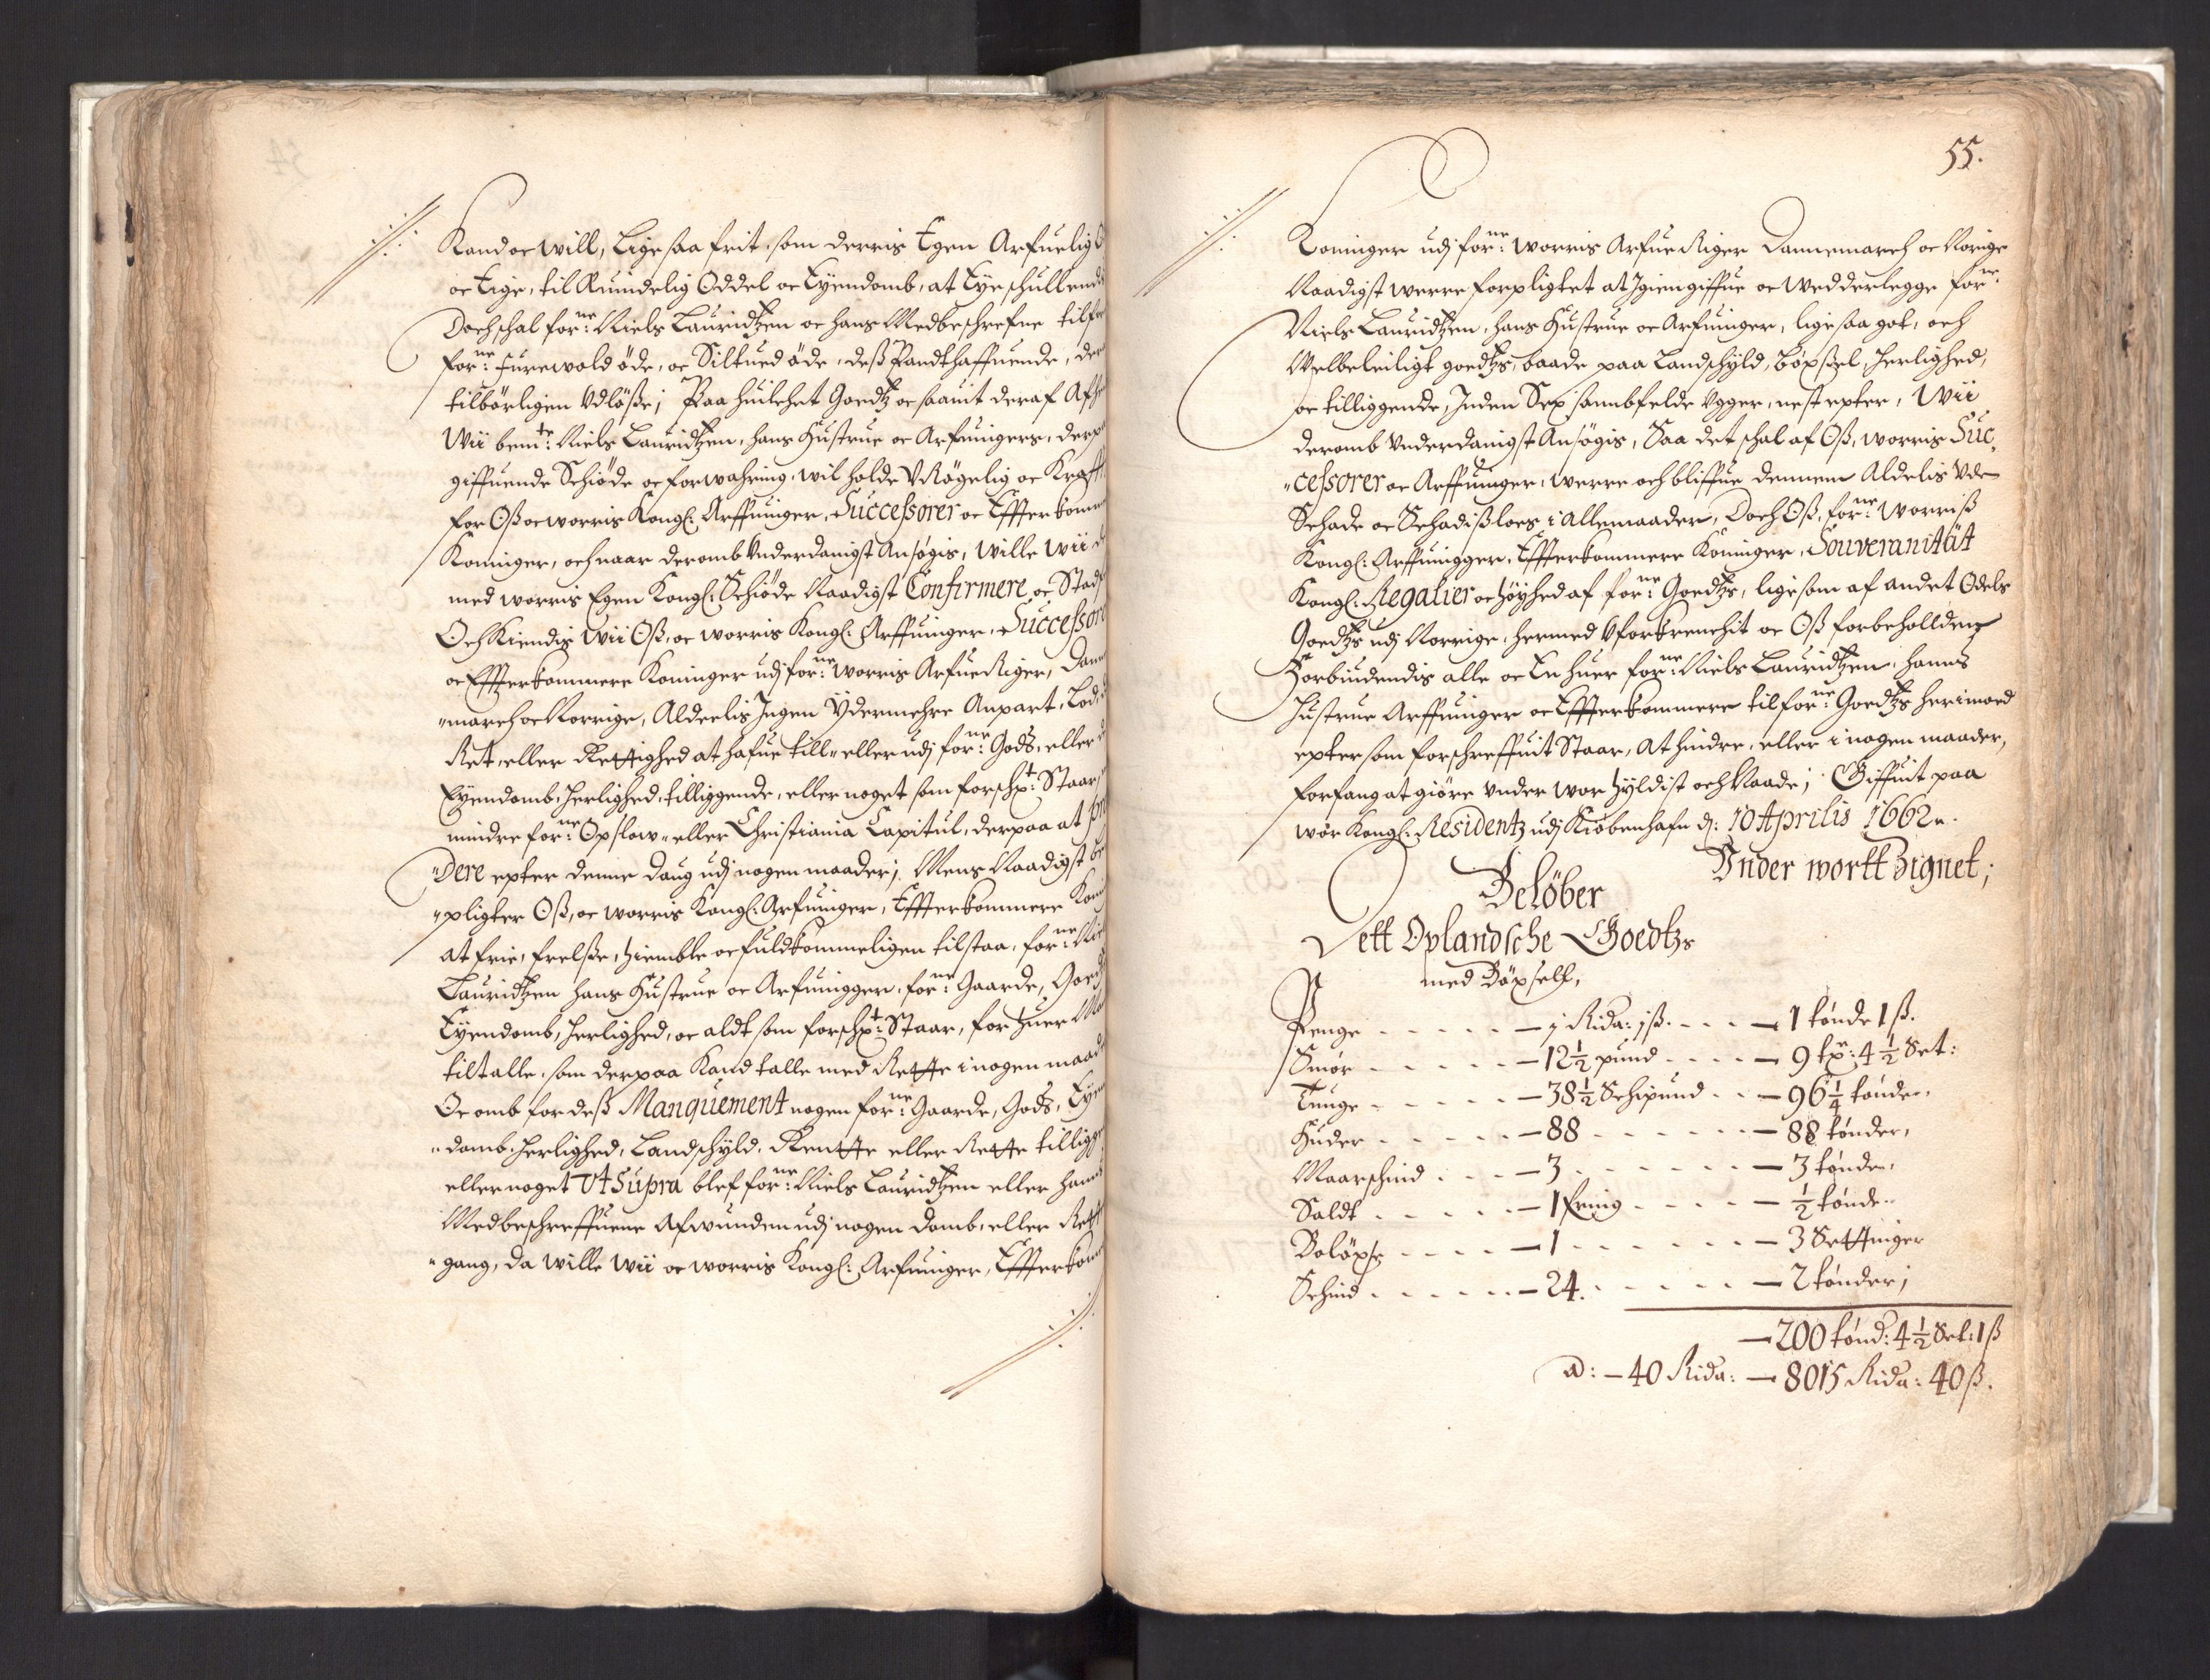 Kand oc will, Ligesaa frit, som derris Egen Arfuelig
oc Eige, til Ruindelig Oddel oc Eyendomb, at Eye schullende
Doch schal forne: Niels Lauridtzen oc hans Medbeschrefne
forne: Furewold öde, oc Siltued öde, deß Pandthaffuende,
tilbörligen Udlöße; Paa huilchet Goedtz oc saauit deraf
Wii bemte: Niels Lauridtzen, hans Hustrue oc Arfuingers,
giffuende Schiöde oc forwahring, wil holde URögelig oc
for Oß oc worris Kongl: Arffuinger, Successorer oc
Koninger, och naar deromb Underdanigst Ansögis, wille wii
med worris Egen Kongl: Schiöde Naadigst Confirmere oc
Och Kiendis wii Oß, oc worris Kongl: Arffuinger,
oc Effterkommere Koninger udj forne: worris ArfueRiger,
"march oc Norrige, Aldeelis Ingen Ydermehre Anpart, Lod,
Ret, eller Rettighed at hafue till- eller udj forne: Gods, eller
Eyendomb, herlighed, tilliggende, eller noget som forschrt: Staar
mindre forne: Opslow- eller Christiania Capitul, derpaa at
"dere epter denne daug udj nogen maader; Mens Naadigst
"pligter Oß, oc worris Kongl: Arfuinger, Effterkommere
at frie, frelße, hiemble oc fuldkommeligen tilstaa, forne:
Lauridtzen hans Hustrue oc Arfuingger, forne: Gaarde,
Eyendomb, herlighed, oc aldt som forschrt: Staar, for huer
tiltalle, som derpaa Kand talle med Rette i nogen
Oc omb for deß Manquement nogen forne: Gaarde, Gods,
"domb, herlighed, Landschyld, Rentte eller Rette
eller noget Ut Supra blef forne: Niels Lauridtzen eller
Medbeschreffuene Afwunden udj nogen domb, eller
"gang, da wille wii oc worris Kongl: Arfuinger,
55.
Koninger udj forne: worris Arfue Riger Dannemarch oc Norige
Naadigst werre forpligtet at Igiengiffue oc Wedderlegge forne:
Niels Lauridtzen, hans Hustrue oc Arfuinger, ligesaa got, och
Welbeleiligt goedtzs, baade paa Landschyld, böxßel, herlighed,
oc tilliggende, Inden Sex sambfelde Ugger, nest epter, Wii
deromb Underdanigst Ansögis, Saa det schal af Oß, worris Suc-
"cessorer oc Arffuinger, werre och bliffue dennem Aldelis Uden
Schade oc Schadißloes i Allemaader, Doch Oß, forne: worriß
Kongl: Arffuingger, Effterkommere Koninger, Souveranität
Kongl: Regalier oc höyhed af forne: Goedtzs, ligesom af andet Odels
Goedtzs udj Norrige, hermed Uforkrenchit oc Oß forbeholldenn
Forbiudendis alle oc En huer forne: Niels Lauridtzen, hanns
Hustrue Arffuinger oc Effterkommere til forne: Goedtzs herimoed
epter som forschreffuit Staar, At hindre, eller i nogen maader,
forfang at giöre under wor hyldist och Naade; Giffuit paa
wor Kongl: Residentz udj Kiöbenhafn d: 10 Aprilis 1662.
Under wortt Zignet;
Belöber
Dett Oplandsche Goedtzs
med Böxsell,
Penge - - - - - 1 Rida: 1ß. - - - 1 tønde 1 ß.
Smör - - - - - 12½ pund - - - - 9 tr: 4½ Set:
Tunge - - - - - 38½ Schipund - - - 96¼ tønder.
Huder - - - - - 88 - - - - - - 88 tønder,
Maarschind - - - 3 - - - - - - 3 tønder.
Saldt - - - - - 1 - - - - ½ tønde.
Bolöxse - - - - 1 - - - - - - 3 Settinger
Schind - - - - - 24. - - - - - 2 tønder;
200 tønd: 4½ Set: 1 ß
a: - 40 Rida: - 8015 Rida: 40 ß.